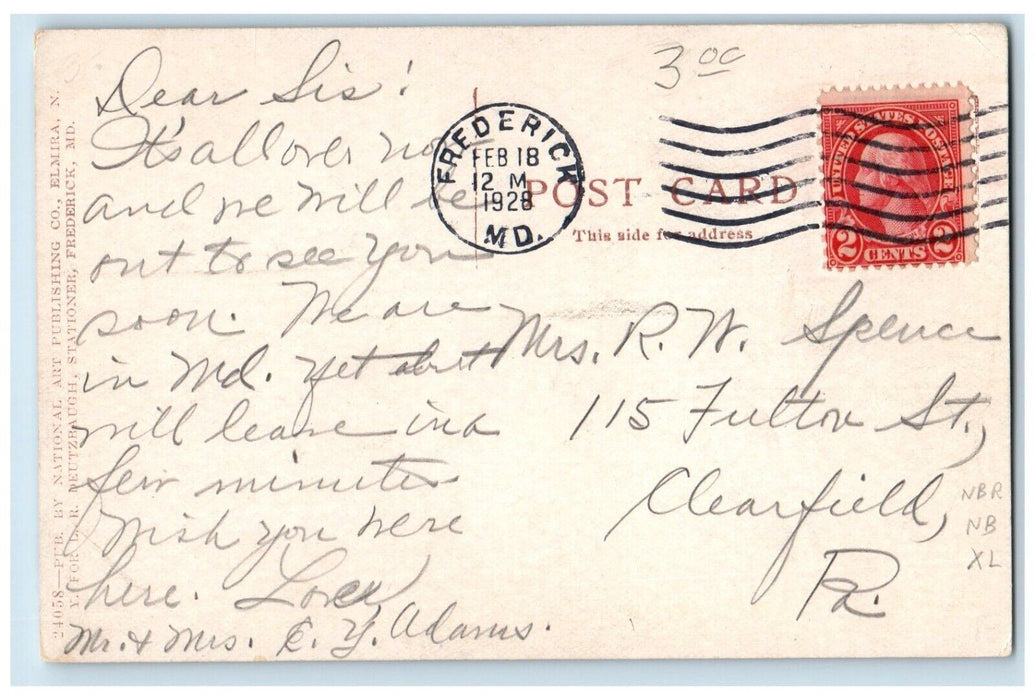 Dear Sis!
It's all over now
and we will be
out to see you
soon. We are
in Md. yet but
will leave in a
few minutes
Wish you were
here. Love
Mr. & Mrs. C. Y. Adams.
3 00
FREDERICK
FEB 18
12 M
1928
MD.
UNITED STATES POSTAGE
2 CENTS 2
POST CARD
This side for address
Mrs. R. W. Spence
115 Fulton St.,
Clearfield,
Pa.
NBR
NB
XL
24058—PUB. BY NATIONAL ART PUBLISHING CO., ELMIRA, N.
Y. FOR L. R. NEUTZBAUGH, STATIONER, FREDERICK, MD.